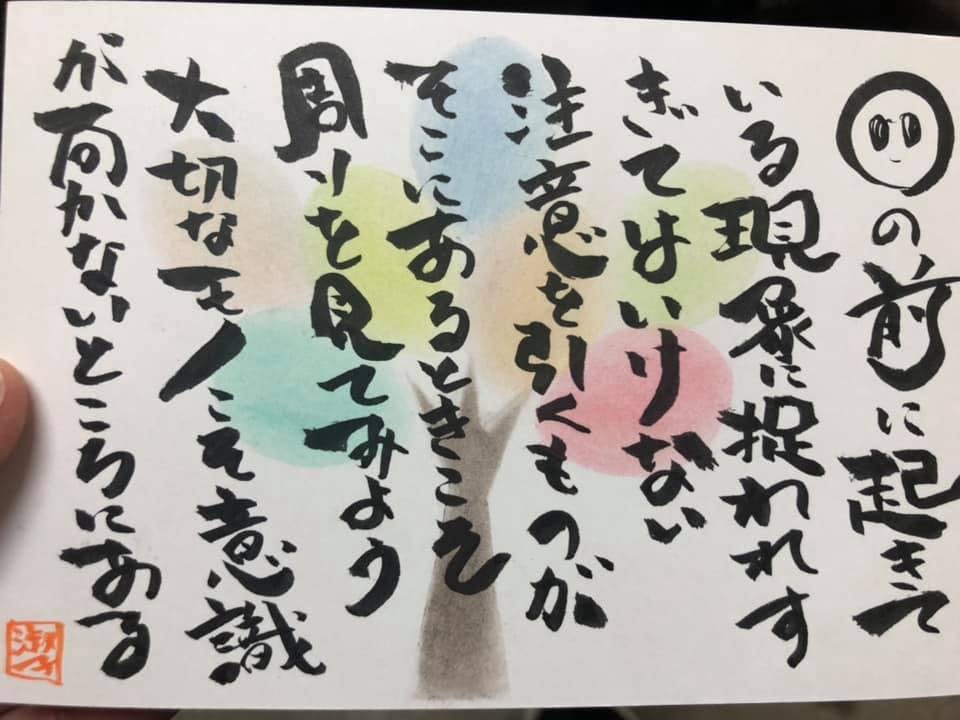 の前に起きて
いる現象に捉われす
ぎてはいけない
注意を引くものが
そこにあるときこそ
周りを見てみよう
大切なモノこそ意識
が向かないところにある